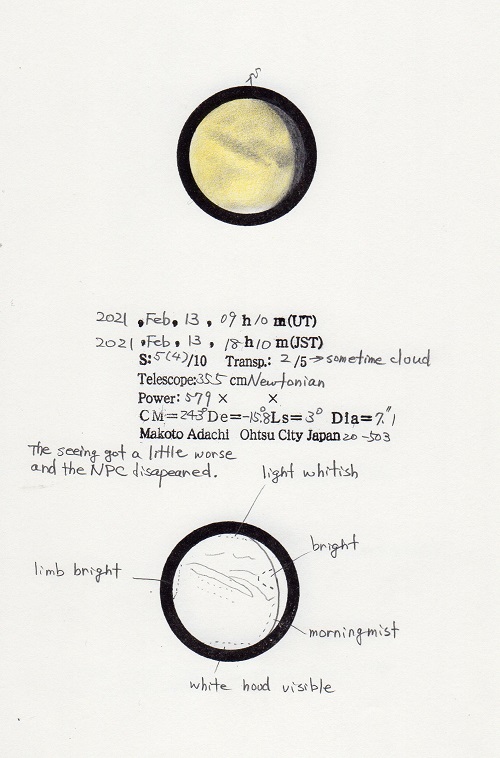 N
2021 , Feb, 13 , 09 h 10 m (UT)
2021 , Feb, 13 , 18 h 10 m (JST)
S: 5(4)/10 Transp.: 2/5→sometime cloud
Telescope: 355 cm Newtonian
Power: 579 × ×
CM=243° De=-15.8° Ls=3° Dia=7."1
Makoto Adachi Ohtsu City Japan 20-503
The seeing got a little worse
and the NPC disapeared.
light whitish
bright
limb bright
morning mist
white hood visible